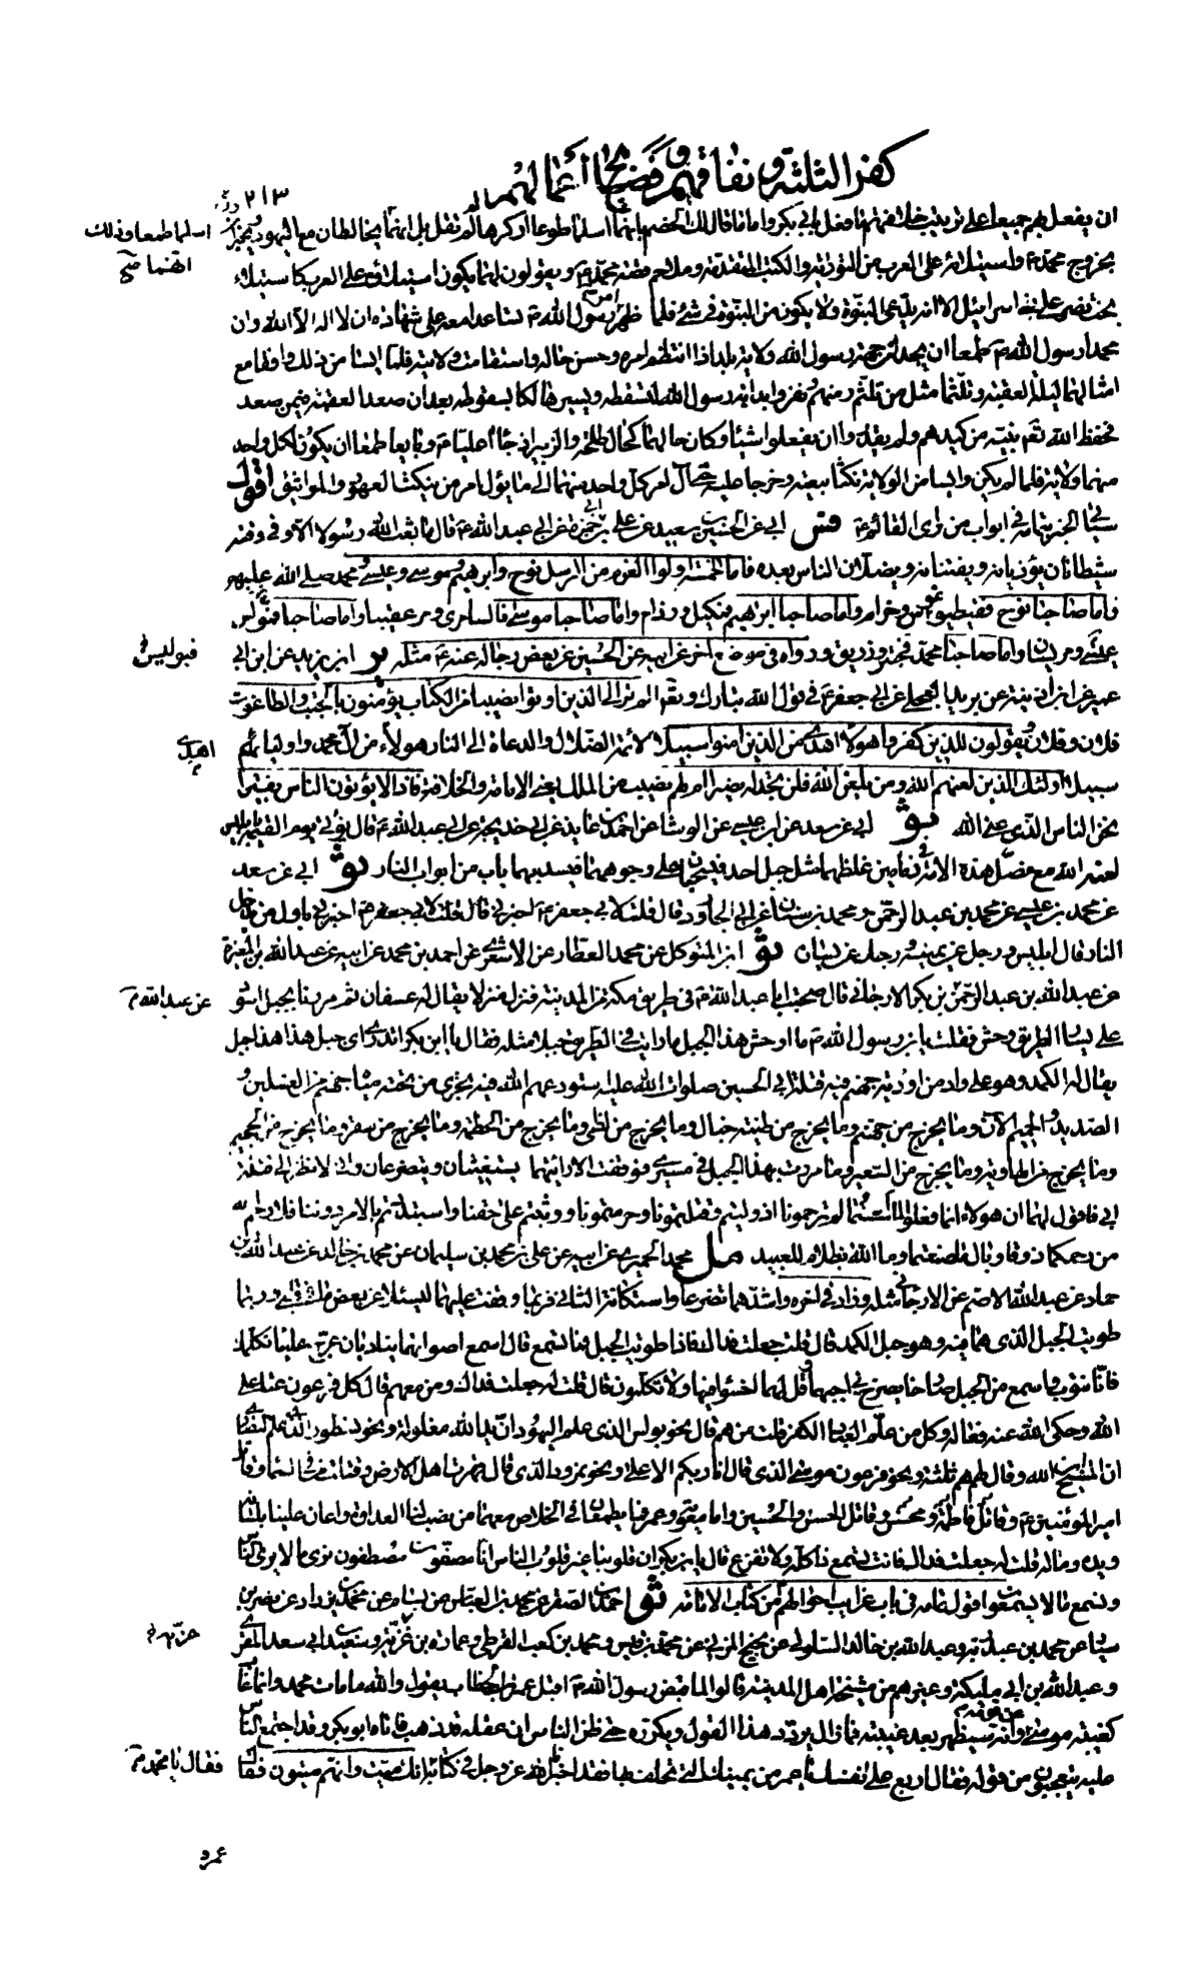 كفر الثلثة ونفاقهم وفضايح أعمالهم
٢١٣
ان يفعل بهم جميعا على ترتيب خلافتهم ما فعل بابي بكر واما ما قال لك الخصم بانهما اسلما طوعا او كرها لم لم تقل بل انهما اسلما طمعا وذلك انهما يخالطان مع اليهود ويخبران
بخروج محمد ص واستيلائه على العرب من التورية والكتب المتقدمة وملاحم قصة محمد ص ويقولون لهما يكون استيلاؤه على العرب كاستيلاء
بخت نصر على بني اسرائيل الا انه يدعي النبوة ولا يكون من النبوة في شئ فلما ظهر امر رسول الله ص تساعدا معه على شهادة ان لا اله الا الله وان
محمدا رسول الله ص طمعا ان يجدا من جهة رسول الله ولاية بلد اذا انتظم امره وحسن حاله واستقامت ولايته فلما ايسا من ذلك وافقا مع
امثالهما ليلة العقبة وتلثما مثل من تلثم منهم ونفروا بدابة رسول الله لتسقطه ويسير هالكا بسقوطه بعد ان صعد العقبة فيمن صعد
فحفظ الله تعم نبيه من كيدهم ولم يقدروا ان يفعلوا شيئا وكان حالهما كحال طلحة والزبير اذ جاءا عليا ع وبايعاه طمعا ان يكون لكل واحد
منهما ولاية فلما لم يكن وايسا من الولاية نكثا بيعته وخرجا عليه حتى آل امر كل واحد منهما الى ما يؤل امر من ينكث العهود والمواثيق اقول
سياتي الخبر بتمامه في ابواب من راى القائم ع فس ابي عن الحسين بن سعيد عن علي بن ابي حمزة عن ابي عبد الله ع قال ما بعث الله رسولا الا وفي وقته
شيطانان يؤذيانه ويفتنانه ويضلان الناس بعده فاما الخمسة اولوا العزم من الرسل نوح وابرهيم وموسى وعيسى ومحمد صلى الله عليهم
فاما صاحبا نوح ففيطيفوس وخرام واما صاحبا ابرهيم فمكيل ورذام واما صاحبا موسى فالسامري ومرعقيبا واما صاحبا
عيسى ومريسان واما صاحبا محمد فحبتر وزريق ورواه في موضع اخر عن ابيه عن الحسين عن بعض رجاله عنه ع مثله ير ابن يزيد عن ابن ابي
عمير عن ابن اذينة عن بريد العجلي عن ابي جعفر ع في قول الله تبارك وتعم الم تر الى الذين اوتوا نصيبا من الكتاب يؤمنون بالجبت والطاغوت
فلان وفلان ويقولون للذين كفروا هؤلاء اهدى من الذين امنوا سبيلا لائمة الضلال والدعاة الى النار هولاء من ال محمد واوليائهم
سبيلا اولئك الذين لعنهم الله ومن يلعن الله فلن تجد له نصيرا ام لهم نصيب من الملك يعني الامامة والخلافة فاذا لا يؤتون الناس نقيرا
نحن الناس الذي عنى الله ثو ابي عن سعد عن ابن عيسى عن الوشا عن احمد بن عايذ عن ابي خديجة عن ابي عبد الله ع قال يؤتى يوم القيمة بابليس
لعنه الله مع مضل هذه الامة في زمامين غلظهما مثل جبل احد فيسحبان على وجوههما فيسد بهما باب من ابواب النار ثو ابي عن سعد
عن محمد بن عيسى عن محمد بن عبد الرحمن ومحمد بن سنان عن ابي الجارود قال قلت لابي جعفر ع اخبرني باول من يدخل
النار قال ابليس ورجل عن يمينه ورجل عن يساره ثو ابن المتوكل عن محمد العطار عن الاشعري عن احمد بن محمد عن ابيه عن عبد الله بن المغيرة
عن عبد الله بن عبد الرحمن عن عبد الله بن بكر الارجاني قال صحبت ابا عبد الله ع في طريق مكة من المدينة فنزل منزلا يقال له عسفان ثم مررنا بجبل اسود
على يسار الطريق وحش فقلت يا بن رسول الله ص ما اوحش هذا الجبل ما رايت في الطريق جبلا مثله فقال يا ابن بكر اتدري اي جبل هذا هذا جبل
يقال له الكمد وهو على واد من اودية جهنم فيه قتلة ابي الحسين صلوات الله عليه استودعهم الله فيه يجري من تحته مياه جهنم من الغسلين و
الصديد والحميم الآن وما يخرج من جهنم وما يخرج من طينة خبال وما يخرج من لظى وما يخرج من الحطمة وما يخرج من سقر وما يخرج من الجحيم
وما يخرج من الهاوية وما يخرج من السعير وما مررت بهذا الجبل في مسيري فوقفت الا رايتهما يستغيثان ويتضرعان واني لانظر الى قتلة
ابي فاقول لهما ان هولاء انما فعلوا لما اسستما لم ترحمونا اذ وليتم وقتلتمونا وحرمتمونا ووثبتم على حقنا واستبددتم بالامر دوننا فلا رحم الله
من رحمكما ذوقا وبال ما صنعتما وما الله بظلام للعبيد مل محمد الحميري عن ابيه عن علي بن محمد بن سليمان عن محمد بن خالد عن عبد الله بن
حماد عن عبد الله الاصم عن الارجاني مثله وزاد في اخره واشدهما تضرعا واستكانة الثاني فربما وقفت عليهما ليتسلى عني بعض ما في قلبي وربما
طويت الجبل الذي هما فيه وهو جبل الكمد قال قلت جعلت فداك فاذا طويت الجبل فما تسمع قال اسمع اصواتهما يناديان عرج علينا نكلمك
فانا نتوب واسمع من الجبل صارخا يصرخ بي اجبهما وقل لهما اخسئوا فيها ولا تكلمون قال قلت له جعلت فداك ومن معهم قال كل فرعون عتا على
الله وحكى الله عنه فعاله وكل من علم العباد الكفر قلت من هم قال نحو بولس الذي علم اليهود ان يد الله مغلولة ونحو نسطور الذي علم النصارى
ان المسيح ابن الله وقال لهم هم ثلثة ونحو فرعون موسى الذي قال انا ربكم الاعلى ونحو نمرود الذي قال قهرت اهل الارض وقتلت من في السماء وقاتل
امير المؤمنين ع وقاتل فاطمة ومحسن وقاتل الحسن والحسين واما معوية وعمرو فما يطمعان في الخلاص معهما من نصب لنا العداوة واعان علينا بلسانه
ويده وماله قلت له جعلت فداك فانت تسمع ذا كله ولا تفزع قال يا بن بكر ان قلوبنا غير قلوب الناس انا مصفون مصطفون نرى ما لا يرى الناس
ونسمع ما لا يسمعون اقول تمامه في باب غرايب احوالهم من كتاب الامامة ثو احمد بن الصقر عن محمد بن العباس بن بسام عن محمد بن يزداد عن نصر بن
سيار عن محمد بن عبد ربه وعبد الله بن خالد السلولي عن نجيح المزني عن محمد بن قيس ومحمد بن كعب القرظي وعمارة بن غزية وسعيد بن ابي سعد المقري
وعبد الله بن ابي مليكة وغيرهم من مشيخة اهل المدينة قالوا لما قبض رسول الله ص اقبل عمر بن الخطاب يقول والله ما مات محمد وانما غاب
كغيبة موسى عن قومه وانه سيظهر بعد غيبته فما زال يردد هذا القول ويكرره حتى ظن الناس ان عقله قد ذهب فاتاه ابو بكر وقد اجتمع الناس
عليه يتعجبون من قوله فقال اربع على نفسك يا عمر من يمينك التي تحلف بها فقد اخبرنا الله عز وجل في كتابه انك ميت وانهم ميتون فقال
اسلما طمعا وذلك
انهما صح
اهدى
عن عبد الله م
فقال يا محمد م
عمرو